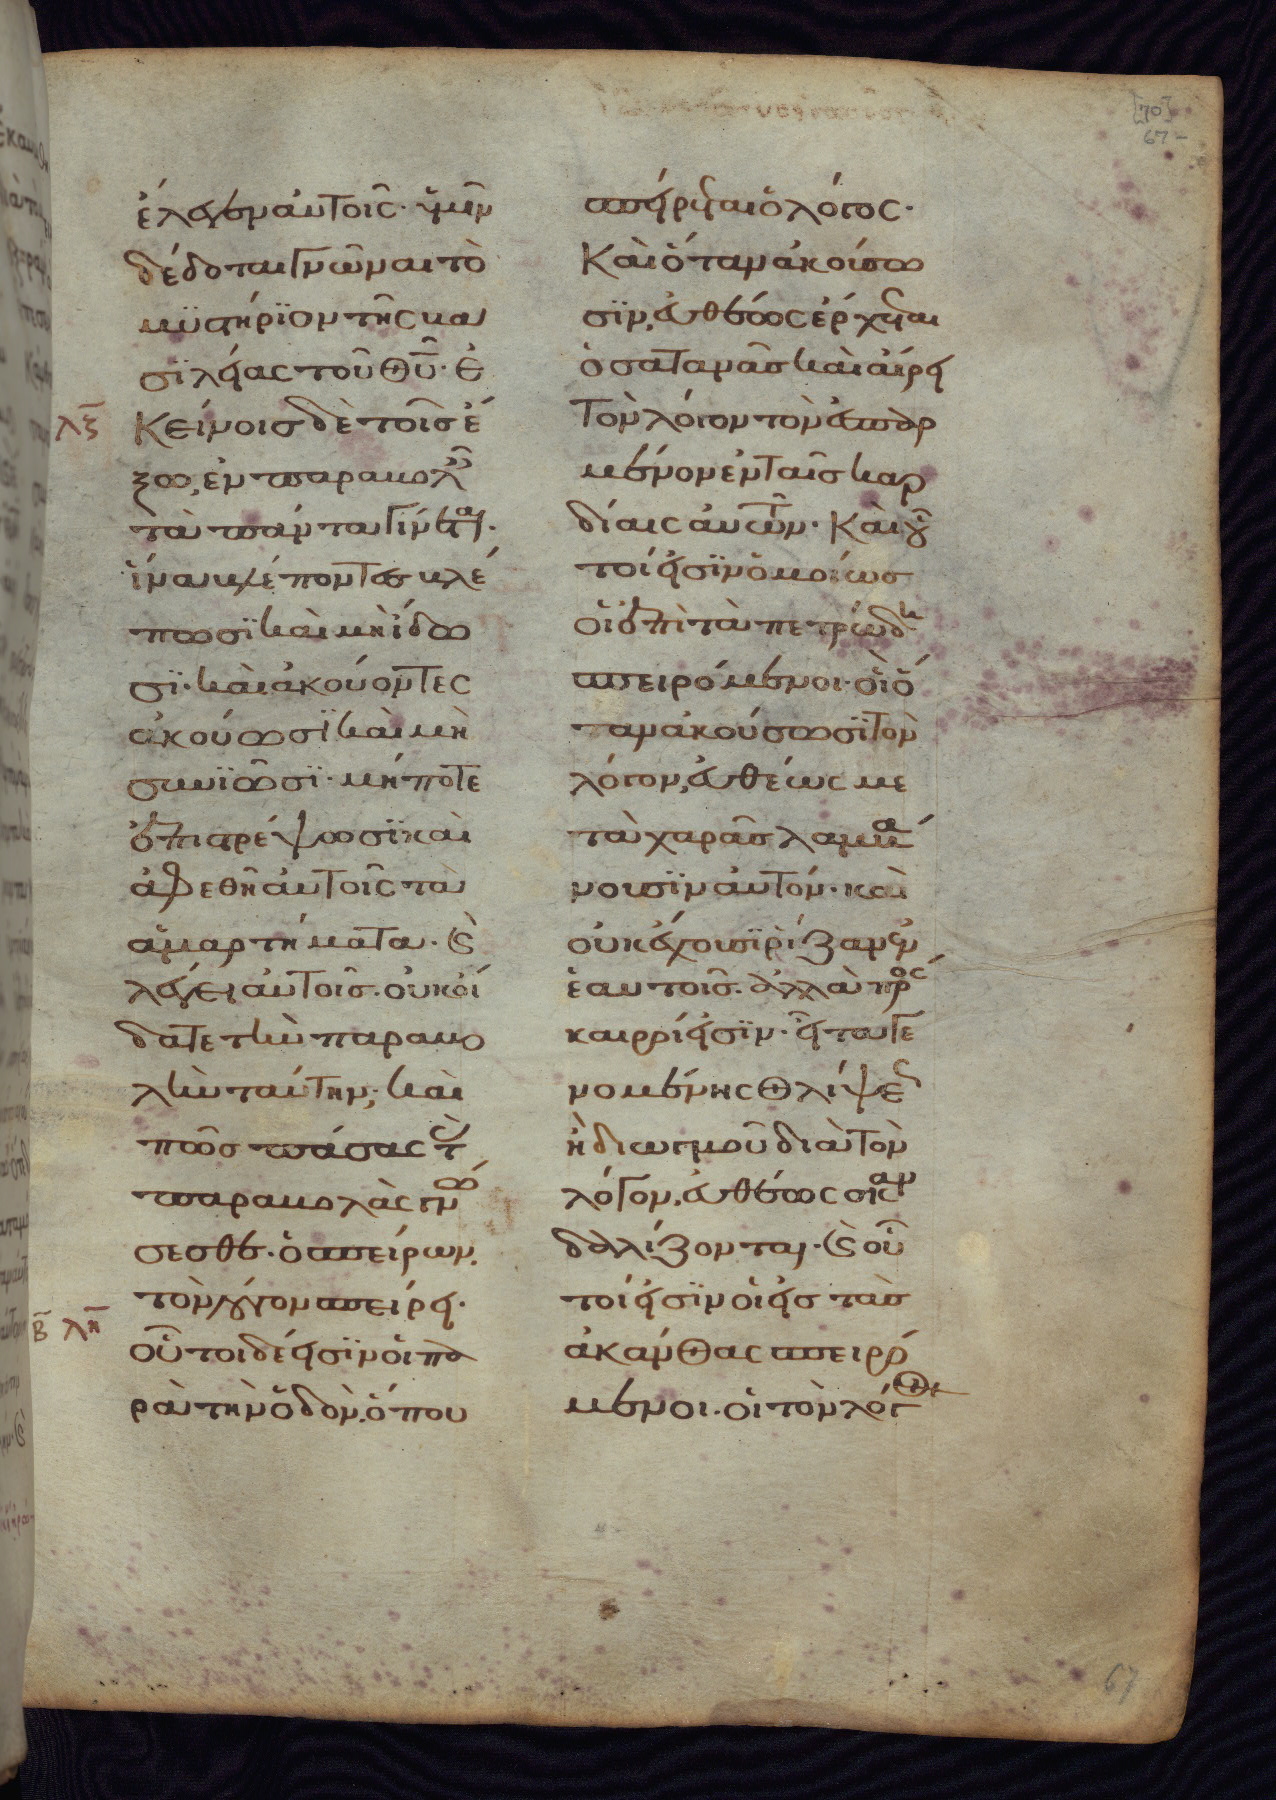 ἔλεγεν αὐτοῖς· ὑμῖν
δέδοται γνῶναι τὸ
μυστήριον τῆς βα
σιλείας τοῦ θ̅υ̅· ἐ
λ̅ξ̅ κείνοις δὲ τοῖς ἔ
ξω, ἐν παραβολ
τὰ πάντα γίνεται·
ἵνα βλέποντες βλέ
πωσϊ καὶ μὴ ἴδω
σϊ· καὶ ἀκούοντες
ἀκούωσϊ καὶ μὴ
συνϊῶσϊ· μήποτε
ἐπιστρέψωσϊ καὶ
ἀφεθῆ αὐτοῖς τὰ
ἁμαρτήματα· ϗ
λέγει αὐτοῖς· οὐκ οἴ
δατε τὴν παραβο
λὴν ταύτην; καὶ
πῶς πάσας τ
παραβολὰς γνώ
σεσθε· ὁ σπείρων
τὸν λόγον σπείρει·
Β̅ λ̅η̅ οὗτοι δέ εἰσϊν οἱ πα
ρὰ τὴν ὁδὸν, ὅπου
σπείρεται ὁ λόγος·
Καὶ ὅταν ἀκούσω
σϊν, εὐθέως ἔρχεται
ὁ σατανᾶς καὶ αἴρει
τὸν λόγον τὸν ἐσπαρ
μένον ἐν ταῖς καρ
δίαις αὐτῶν· Καὶ οὗ
τοί εἰσϊν ὁμοίως
οἱ ἐπὶ τὰ πετρώδη
σπειρόμενοι· οἳ ὅ
ταν ἀκούσωσϊ τὸν
λόγον, εὐθέως με
τὰ χαρᾶς λαμβά
νουσϊν αὐτόν· καὶ
οὐκ ἔχουσϊ ῥίζαν ἐν
ἑαυτοῖς· ἀλλὰ πρός
καιροί εἰσϊν· εἶτα γε
νομένης θλίψε
ἢ διωγμοῦ διὰ τὸν
λόγον, εὐθέως σκαν
δαλίζονται· ϗ οὗ
τοί εἰσϊν οἱ εἰς τὰς
ἀκάνθας σπειρό
μενοι· οἱ τὸν λόγ
[70]
67
67